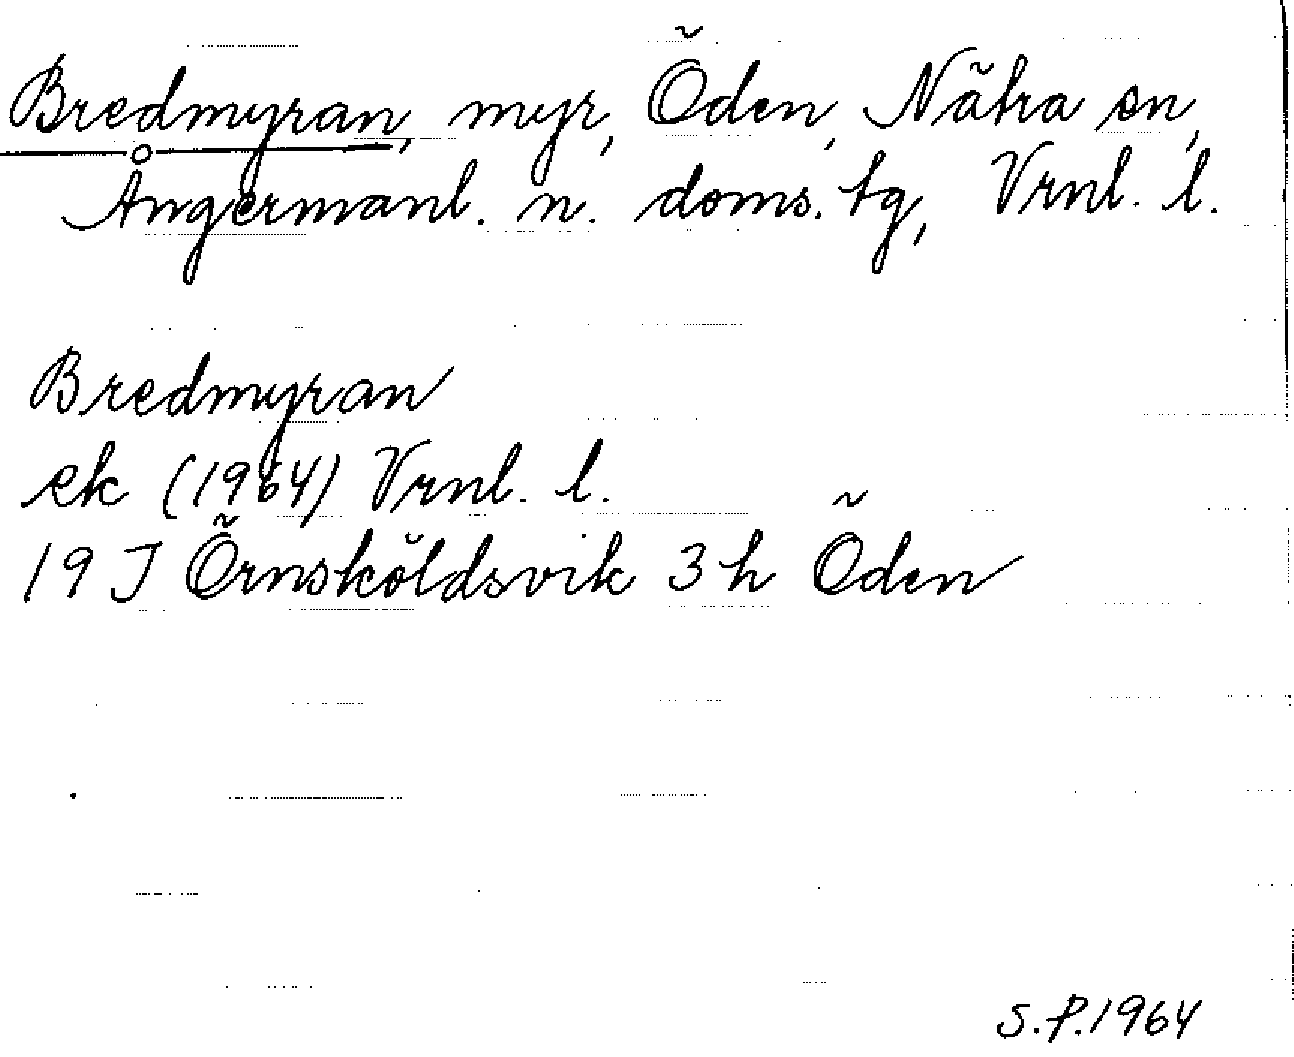 Bredmyran, myr, Öden, Nätra sn,
Ångermanl. n. doms. tg, Vrnl. l.
Bredmyran
ek (1964) Vrnl. l.
19 J Örnsköldsvik 3 h Öden
S.P. 1964